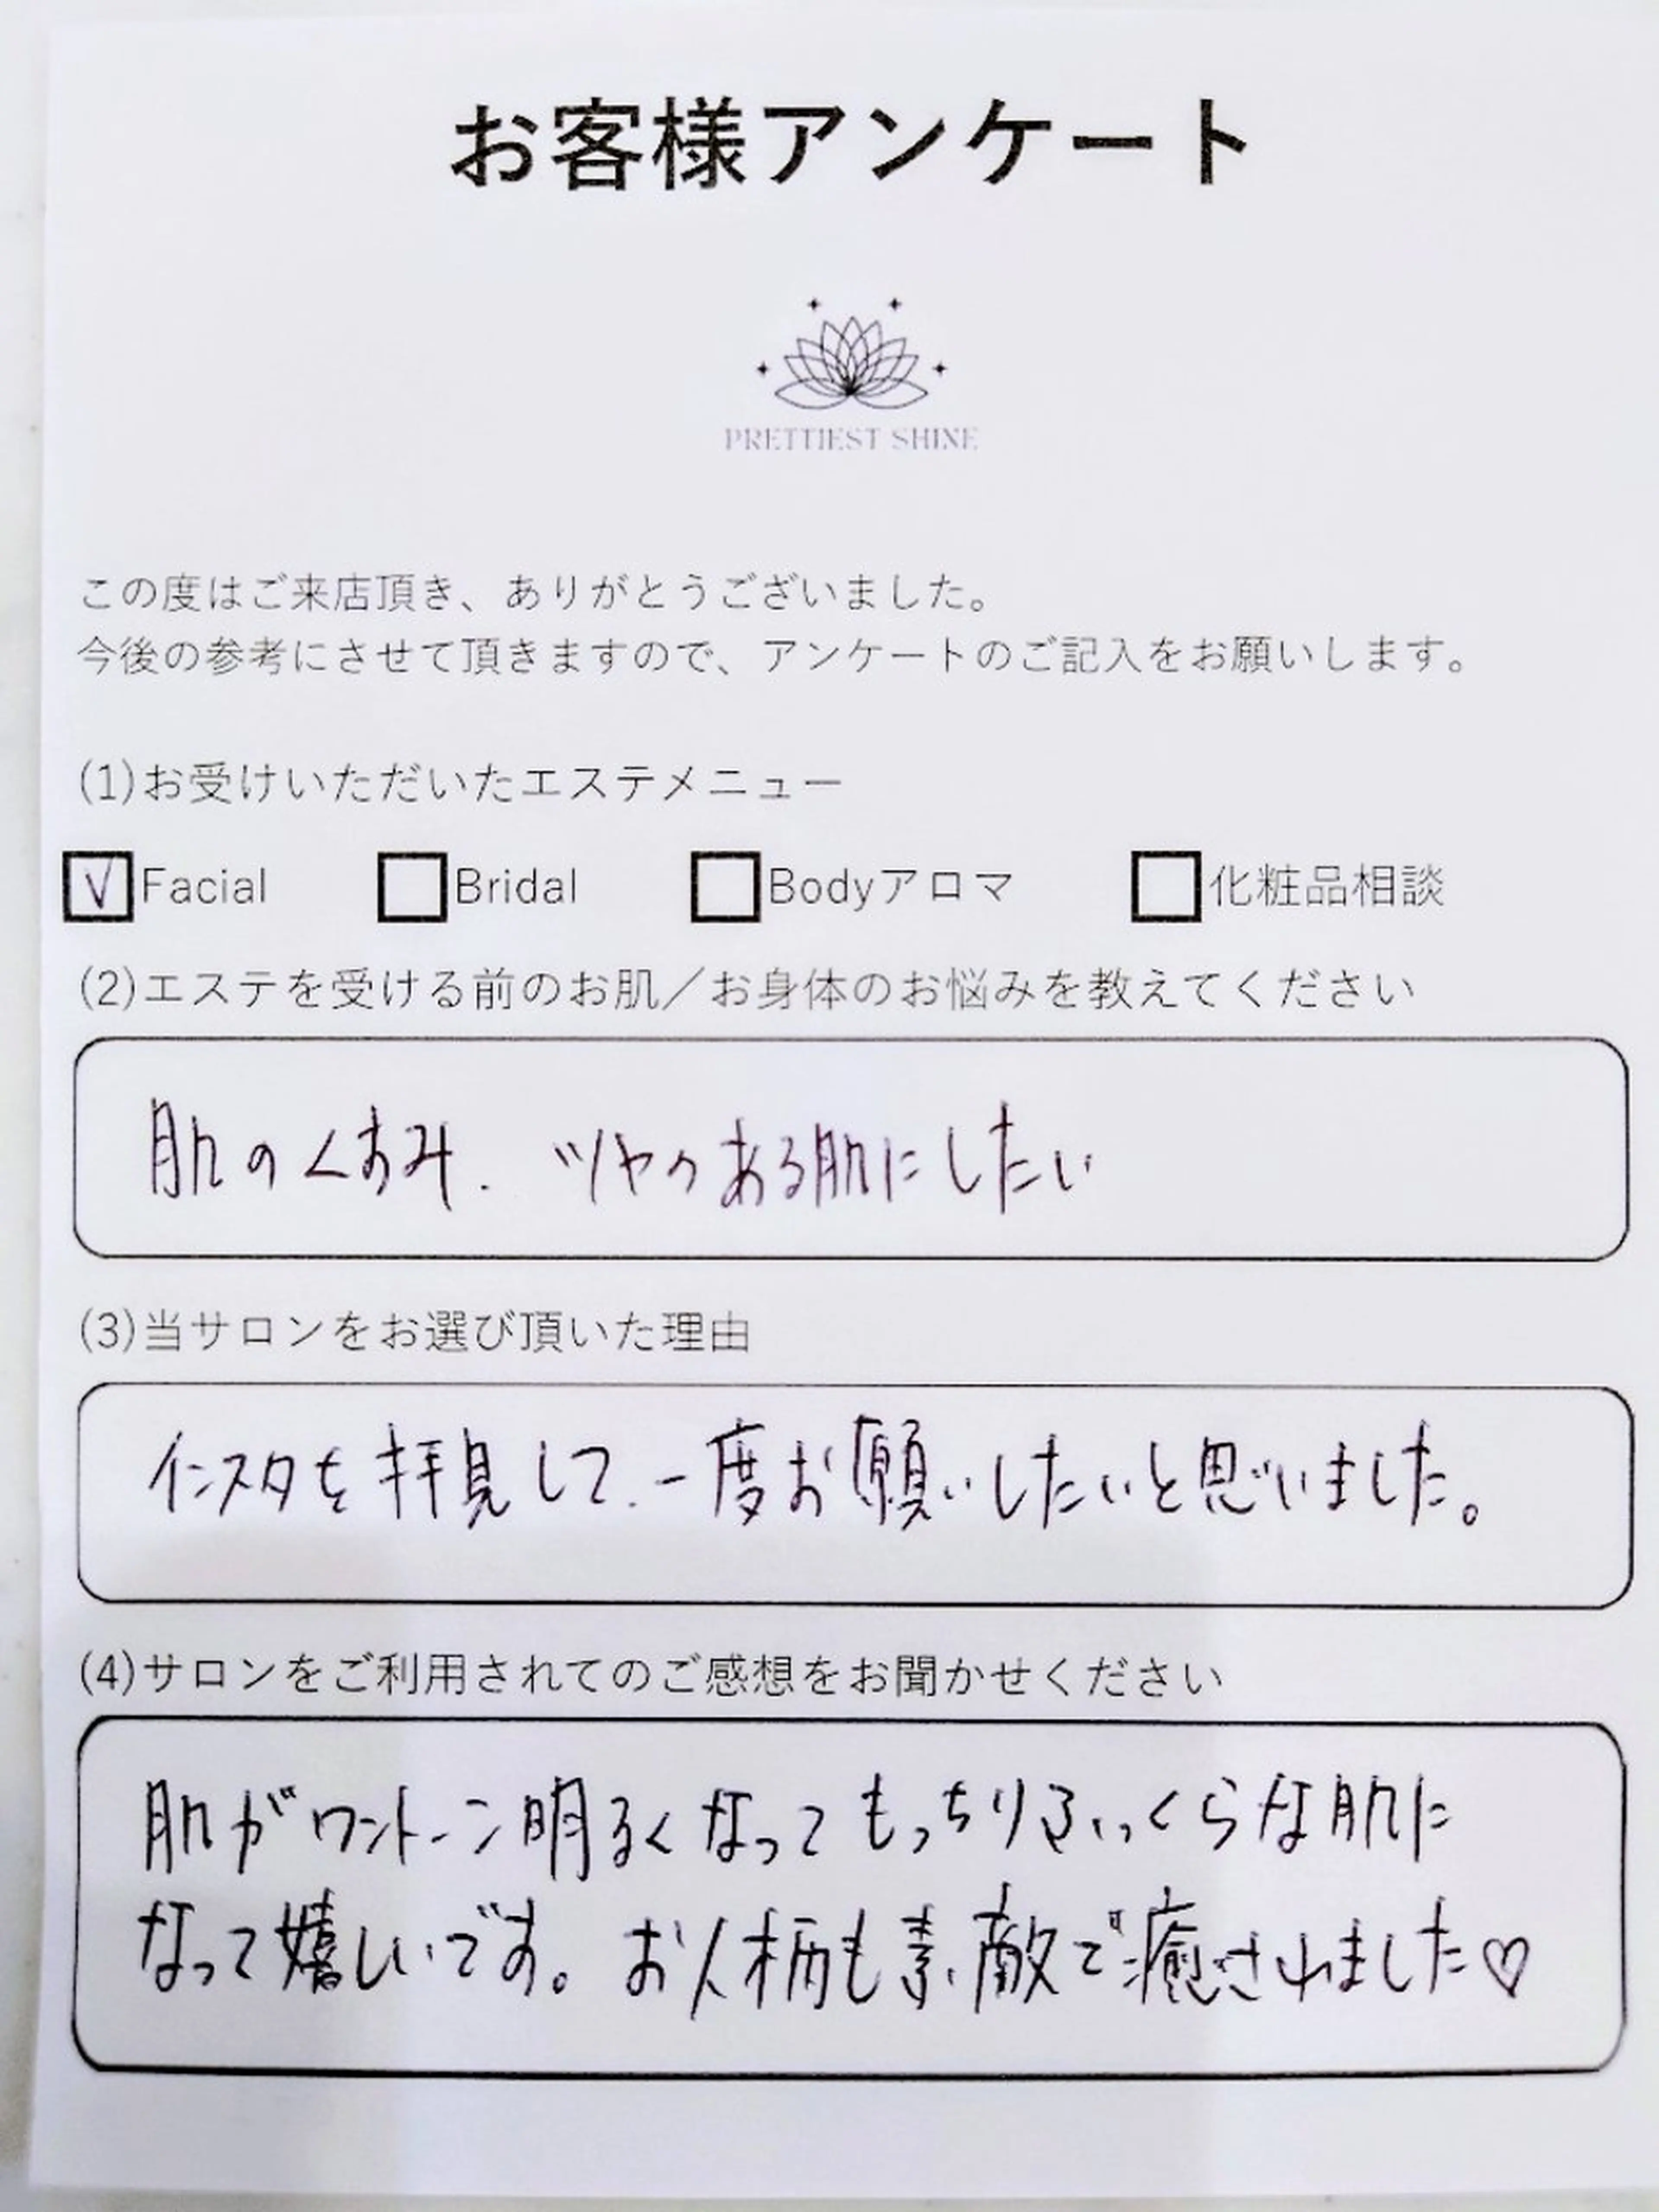 お客様アンケート
PRETTIEST SHINE
この度はご来店頂き、ありがとうございました。
今後の参考にさせて頂きますので、アンケートのご記入をお願いします。
(1)お受けいただいたエステメニュー
☑Facial □Bridal □Bodyアロマ □化粧品相談
(2)エステを受ける前のお肌／お身体のお悩みを教えてください
肌のくすみ、ツヤのある肌にしたい
(3)当サロンをお選び頂いた理由
インスタを拝見して、一度お願いしたいと思いました。
(4)サロンをご利用されてのご感想をお聞かせください
肌がワントーン明るくなってもっちりふっくらな肌に
なって嬉しいです。お人柄も素敵で癒されました♡